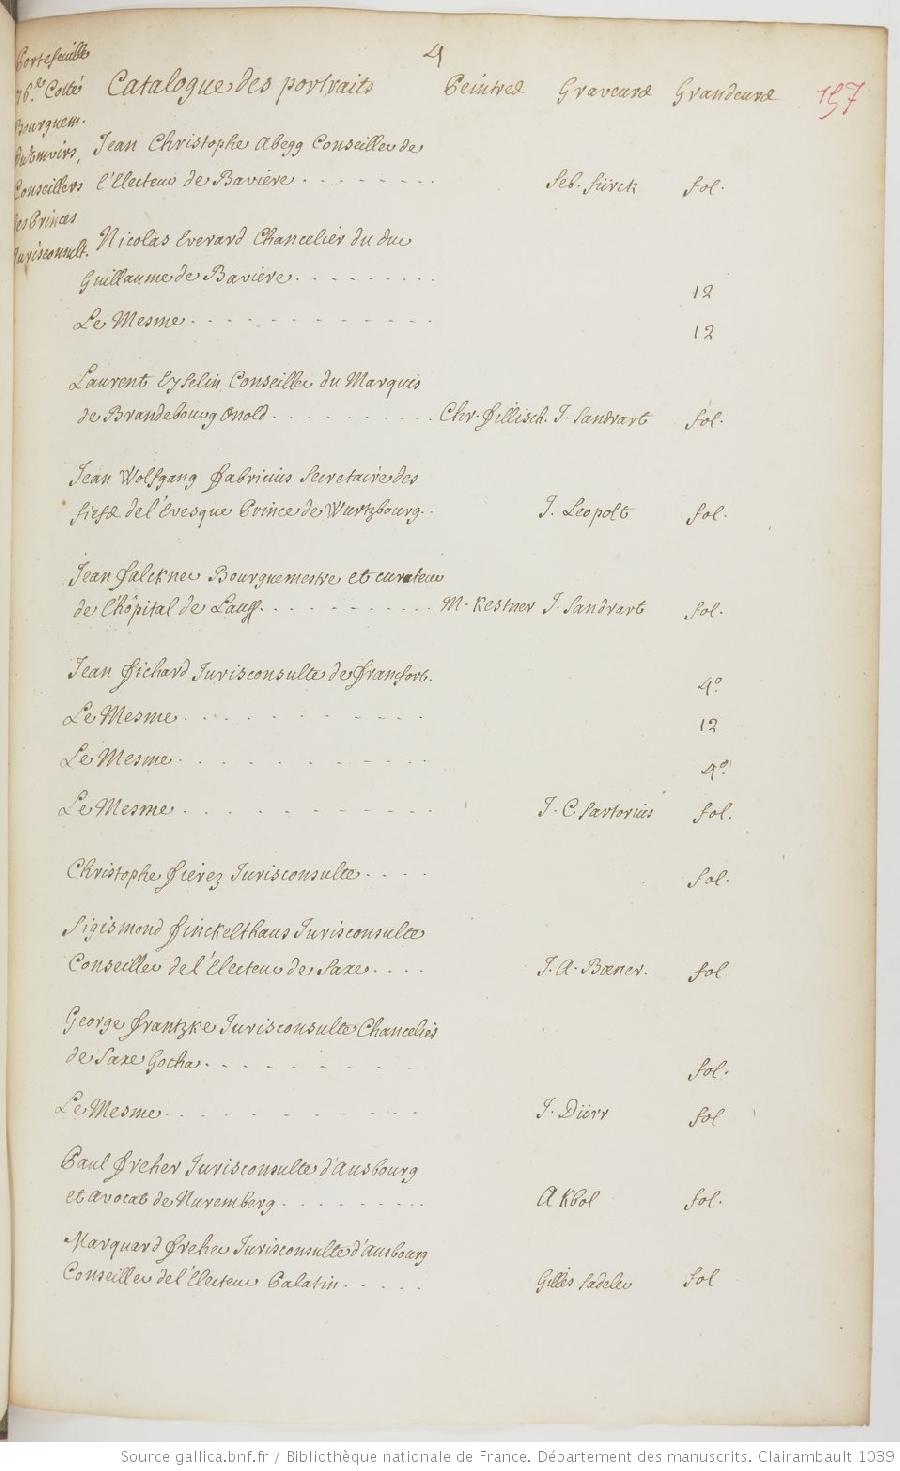 4
Portefeuille
76.e Cotté
Bourguem.
Duumvirs,
Conseillers
des Princes
Jurisconsult.
Catalogue des portraits Peintres Graveurs Grandeurs 157
Jean Christophe Abegg Conseiller de
l'Electeur de Baviere . . . . . . . . Seb. Fürck fol.
Nicolas Everard Chancelier du duc
Guillaume de Baviere . . . . . . . . . 12
Le Mesme . . . . . . . . . . . . 12
Laurent Eyselin Conseiller du Marquis
de Brandebourg Onold . . . . . . . . . Chr. Fillisch. J. Sandrart fol.
Jean Wolfgang Fabricius Secretaire des
fiefs de l'Evesque Prince de Wurtzbourg . . J. Leopolt fol.
Jean Falckner Bourguemestre et curateur
de l'hôpital de Lauff . . . . . . . . . . M. Kestner J. Sandrart fol.
Jean Fichard Jurisconsulte de Francfort. 4.o
Le Mesme . . . . . . . . . . 12
Le Mesme . . . . . . . . . . 4.o
Le Mesme . . . . . . . . . . J. C. Sartorius fol.
Christophe Fierez Jurisconsulte . . . . fol.
Sigismond Finckelthaus Jurisconsulte
Conseiller de l'Electeur de Saxe . . . . J. A. Bœner. fol
George Frantzke Jurisconsulte Chancelier
de Saxe Gotha . . . . . . . . . . fol.
Le Mesme . . . . . . . . . . J. Dürr fol
Paul Freher Jurisconsulte d'Ausbourg
et avocat de Nuremberg . . . . . . . . A Khol fol.
Marquard Freher Jurisconsulte d'Ausbourg
Conseiller de l'Electeur Palatin . . . . . Gilles Sadeler fol
Source gallica.bnf.fr / Bibliothèque nationale de France. Département des manuscrits. Clairambault 1039